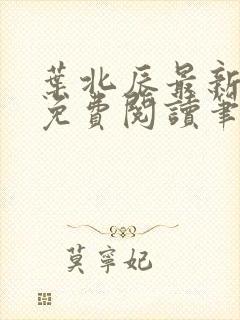 葉北辰最新
免費閱讀筆
莫寧妃